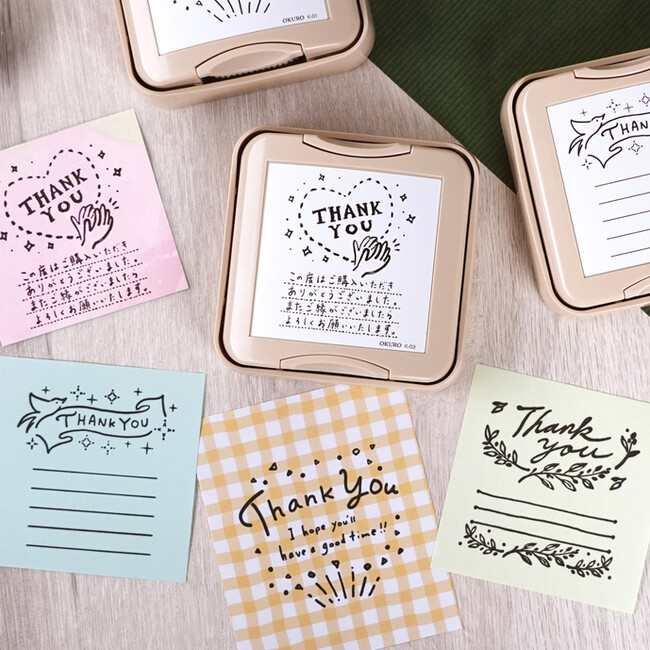 OKURO K-01
THANK
YOU
この度はご購入いただき
ありがとうございました。
またご縁がございましたら
よろしくお願いいたします。
THANK
YOU
この度はご購入いただき
ありがとうございました。
またご縁がございましたら
よろしくお願いいたします。
OKURO K-03
THAN
THANK YOU
Thank You
I hope you'll
have a good time!!
Thank
you